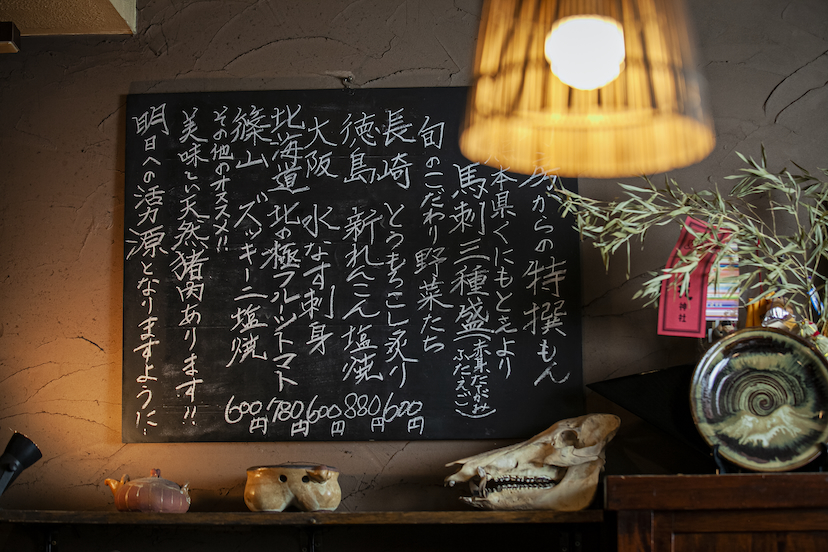 からの特撰もん
本県くにもとさより
馬刺三種盛(赤身たてがみふたえご)
旬のこだわり野菜たち
長崎 とうもろこし炙り 600円
徳島 新れんこん塩焼 880円
大阪 水なす刺身 600円
北海道 北の極フルーツトマト 780円
篠山 ズッキーニ塩焼 600円
その他のオススメ!!
美味しい天然猪肉あります!!
明日への活力源となりますように
神社